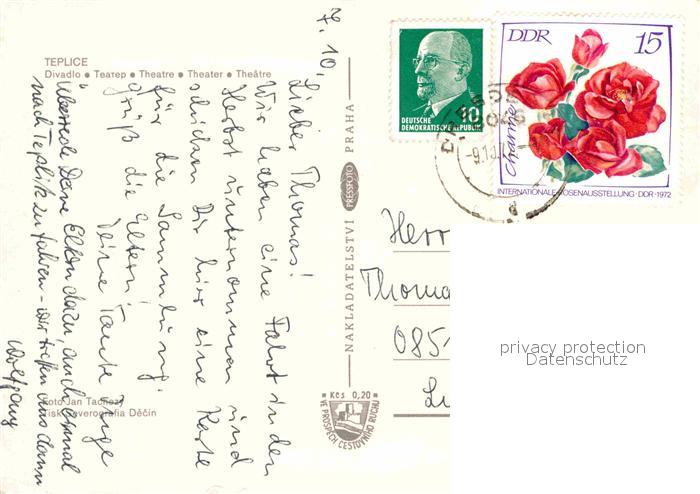 TEPLICE
Divadlo • Театер • Theatre • Theater • Theâtre
7. 10.
Lieber Thomas!
Wir haben eine Fahrt in den
Herbst unternommen und
schicken Dir hier eine Karte
für die Sammlung.
Grüß die Eltern!
Deine Tante Inge
Überrede Deine Eltern dazu, auch einmal
nach Teplitz zu fahren - wir treffen uns dann
Wolfgang
Foto Jan Tachezý
Tisk Severografia Děčín
NAKLADATELSTVÍ PRESSFOTO PRAHA
Kčs 0,20
VE PROSPĚCH CESTOVNÍHO RUCHU
10
DEUTSCHE
DEMOKRATISCHE REPUBLIK
DDR 15
Charme
INTERNATIONALE ROSENAUSSTELLUNG · DDR · 1972
-9.10.
Herr
Thoma
085
privacy protection
Datenschutz